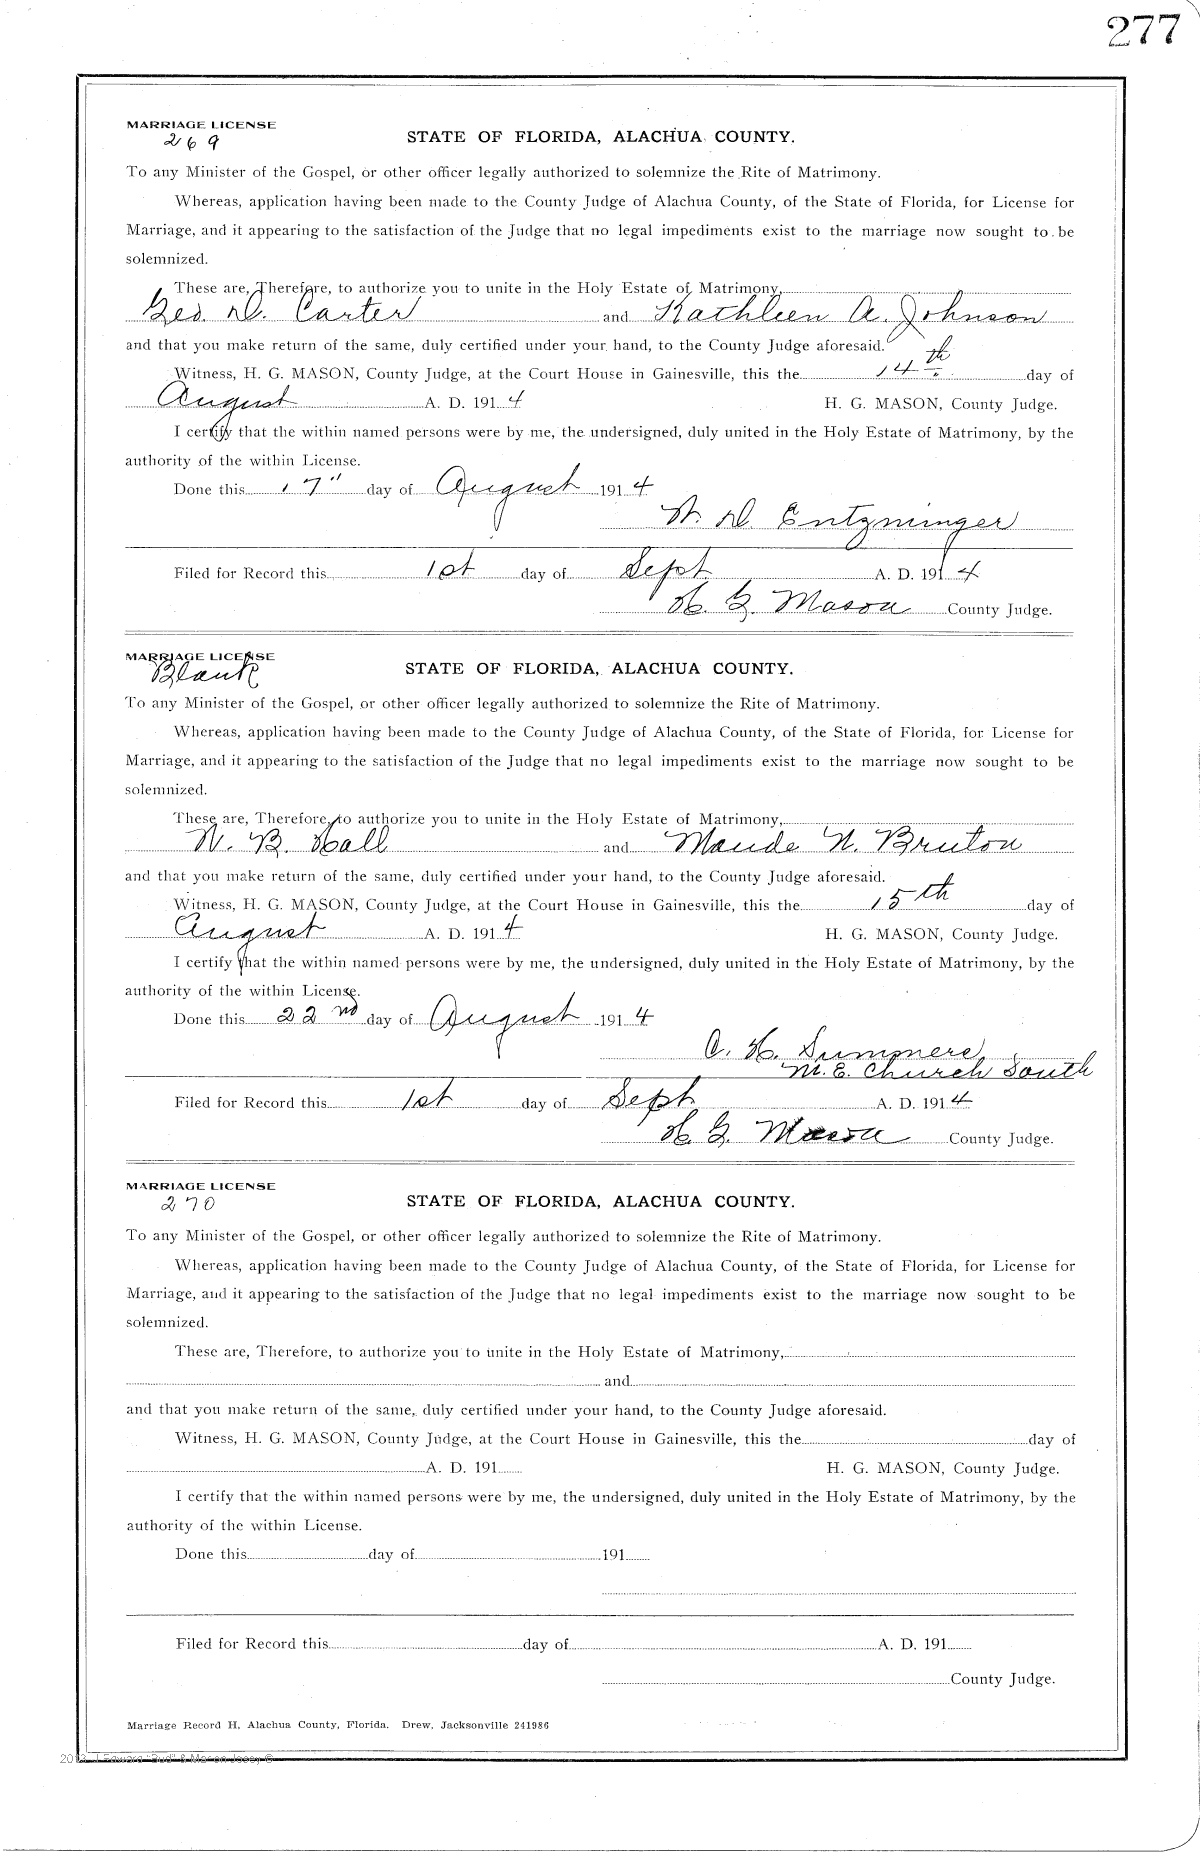 277
MARRIAGE LICENSE
269
STATE OF FLORIDA, ALACHUA COUNTY.
To any Minister of the Gospel, or other officer legally authorized to solemnize the Rite of Matrimony.
Whereas, application having been made to the County Judge of Alachua County, of the State of Florida, for License for
Marriage, and it appearing to the satisfaction of the Judge that no legal impediments exist to the marriage now sought to be
solemnized.
These are, Therefore, to authorize you to unite in the Holy Estate of Matrimony,
Geo. D. Carter and Kathleen A. Johnson
and that you make return of the same, duly certified under your hand, to the County Judge aforesaid.
Witness, H. G. MASON, County Judge, at the Court House in Gainesville, this the 14th day of
August A. D. 1914 H. G. MASON, County Judge.
I certify that the within named persons were by me, the undersigned, duly united in the Holy Estate of Matrimony, by the
authority of the within License.
Done this 17" day of August 1914
W. D. Entzminger
Filed for Record this 1st day of Sept A. D. 1914
H. G. Mason County Judge.
MARRIAGE LICENSE
Blank
STATE OF FLORIDA, ALACHUA COUNTY.
To any Minister of the Gospel, or other officer legally authorized to solemnize the Rite of Matrimony.
Whereas, application having been made to the County Judge of Alachua County, of the State of Florida, for License for
Marriage, and it appearing to the satisfaction of the Judge that no legal impediments exist to the marriage now sought to be
solemnized.
These are, Therefore, to authorize you to unite in the Holy Estate of Matrimony,
W. B. Hall and Maude N. Bruton
and that you make return of the same, duly certified under your hand, to the County Judge aforesaid.
Witness, H. G. MASON, County Judge, at the Court House in Gainesville, this the 15th day of
August A. D. 1914 H. G. MASON, County Judge.
I certify that the within named persons were by me, the undersigned, duly united in the Holy Estate of Matrimony, by the
authority of the within License.
Done this 22nd day of August 1914
C. H. Summers
M. E. Church South
Filed for Record this 1st day of Sept A. D. 1914
H. G. Mason County Judge.
MARRIAGE LICENSE
270
STATE OF FLORIDA, ALACHUA COUNTY.
To any Minister of the Gospel, or other officer legally authorized to solemnize the Rite of Matrimony.
Whereas, application having been made to the County Judge of Alachua County, of the State of Florida, for License for
Marriage, and it appearing to the satisfaction of the Judge that no legal impediments exist to the marriage now sought to be
solemnized.
These are, Therefore, to authorize you to unite in the Holy Estate of Matrimony,
and
and that you make return of the same, duly certified under your hand, to the County Judge aforesaid.
Witness, H. G. MASON, County Judge, at the Court House in Gainesville, this the day of
A. D. 191 H. G. MASON, County Judge.
I certify that the within named persons were by me, the undersigned, duly united in the Holy Estate of Matrimony, by the
authority of the within License.
Done this day of 191
Filed for Record this day of A. D. 191
County Judge.
Marriage Record H, Alachua County, Florida. Drew, Jacksonville 241986